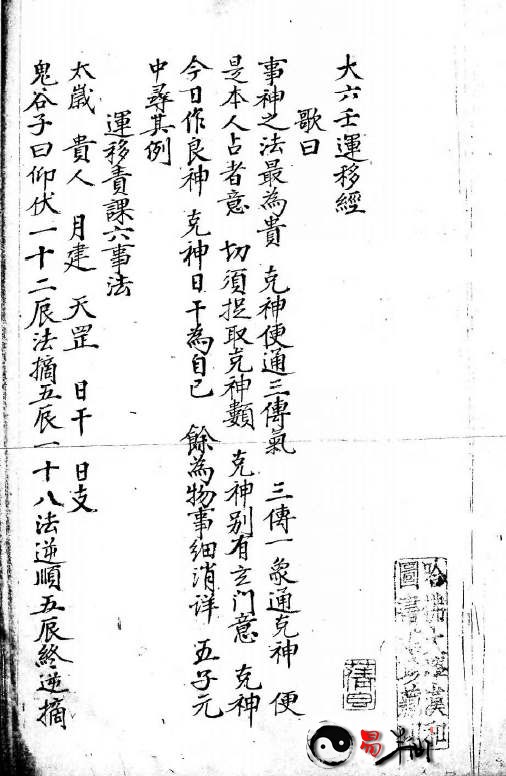 大六壬運移經
歌曰
事神之法最為貴 克神便通三傳氣 三傳一象通克神 便
是本人占者意 切須捉取克神類 克神别有玄门意 克神
今日作良神 克神日干為自己 餘為物事細消详 五子元
中尋其例
運移責課六事法
太歲 貴人 月建 天罡 日干 日支
鬼谷子曰仰伏一十二辰法摘五辰一十八法逆順五辰終逆摘
易